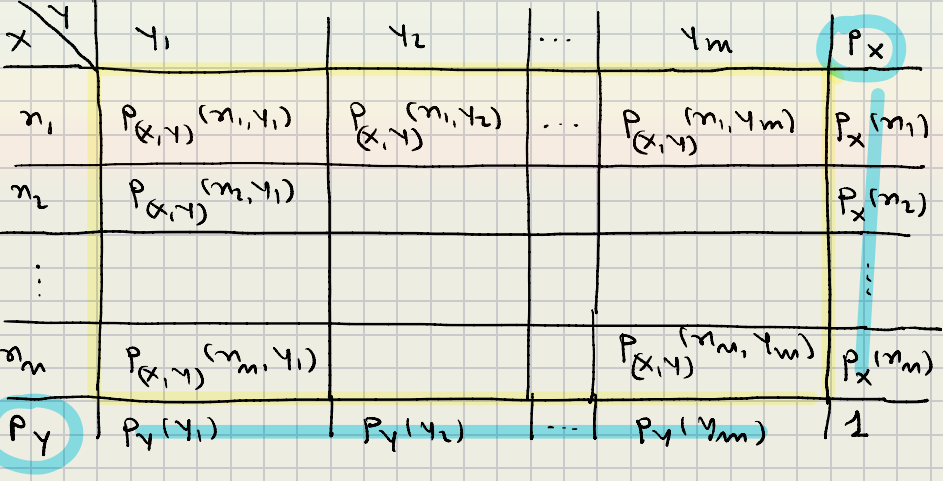 X Y y₁ y₂ ... yₘ Pₓ
x₁ P₍X,Y₎(x₁,y₁) P₍X,Y₎(x₁,y₂) ... P₍X,Y₎(x₁,yₘ) Pₓ(x₁)
x₂ P₍X,Y₎(x₂,y₁) Pₓ(x₂)
⋮ ⋮
xₙ P₍X,Y₎(xₙ,y₁) P₍X,Y₎(xₙ,yₘ) Pₓ(xₙ)
P_Y P_Y(y₁) P_Y(y₂) ... P_Y(yₘ) 1